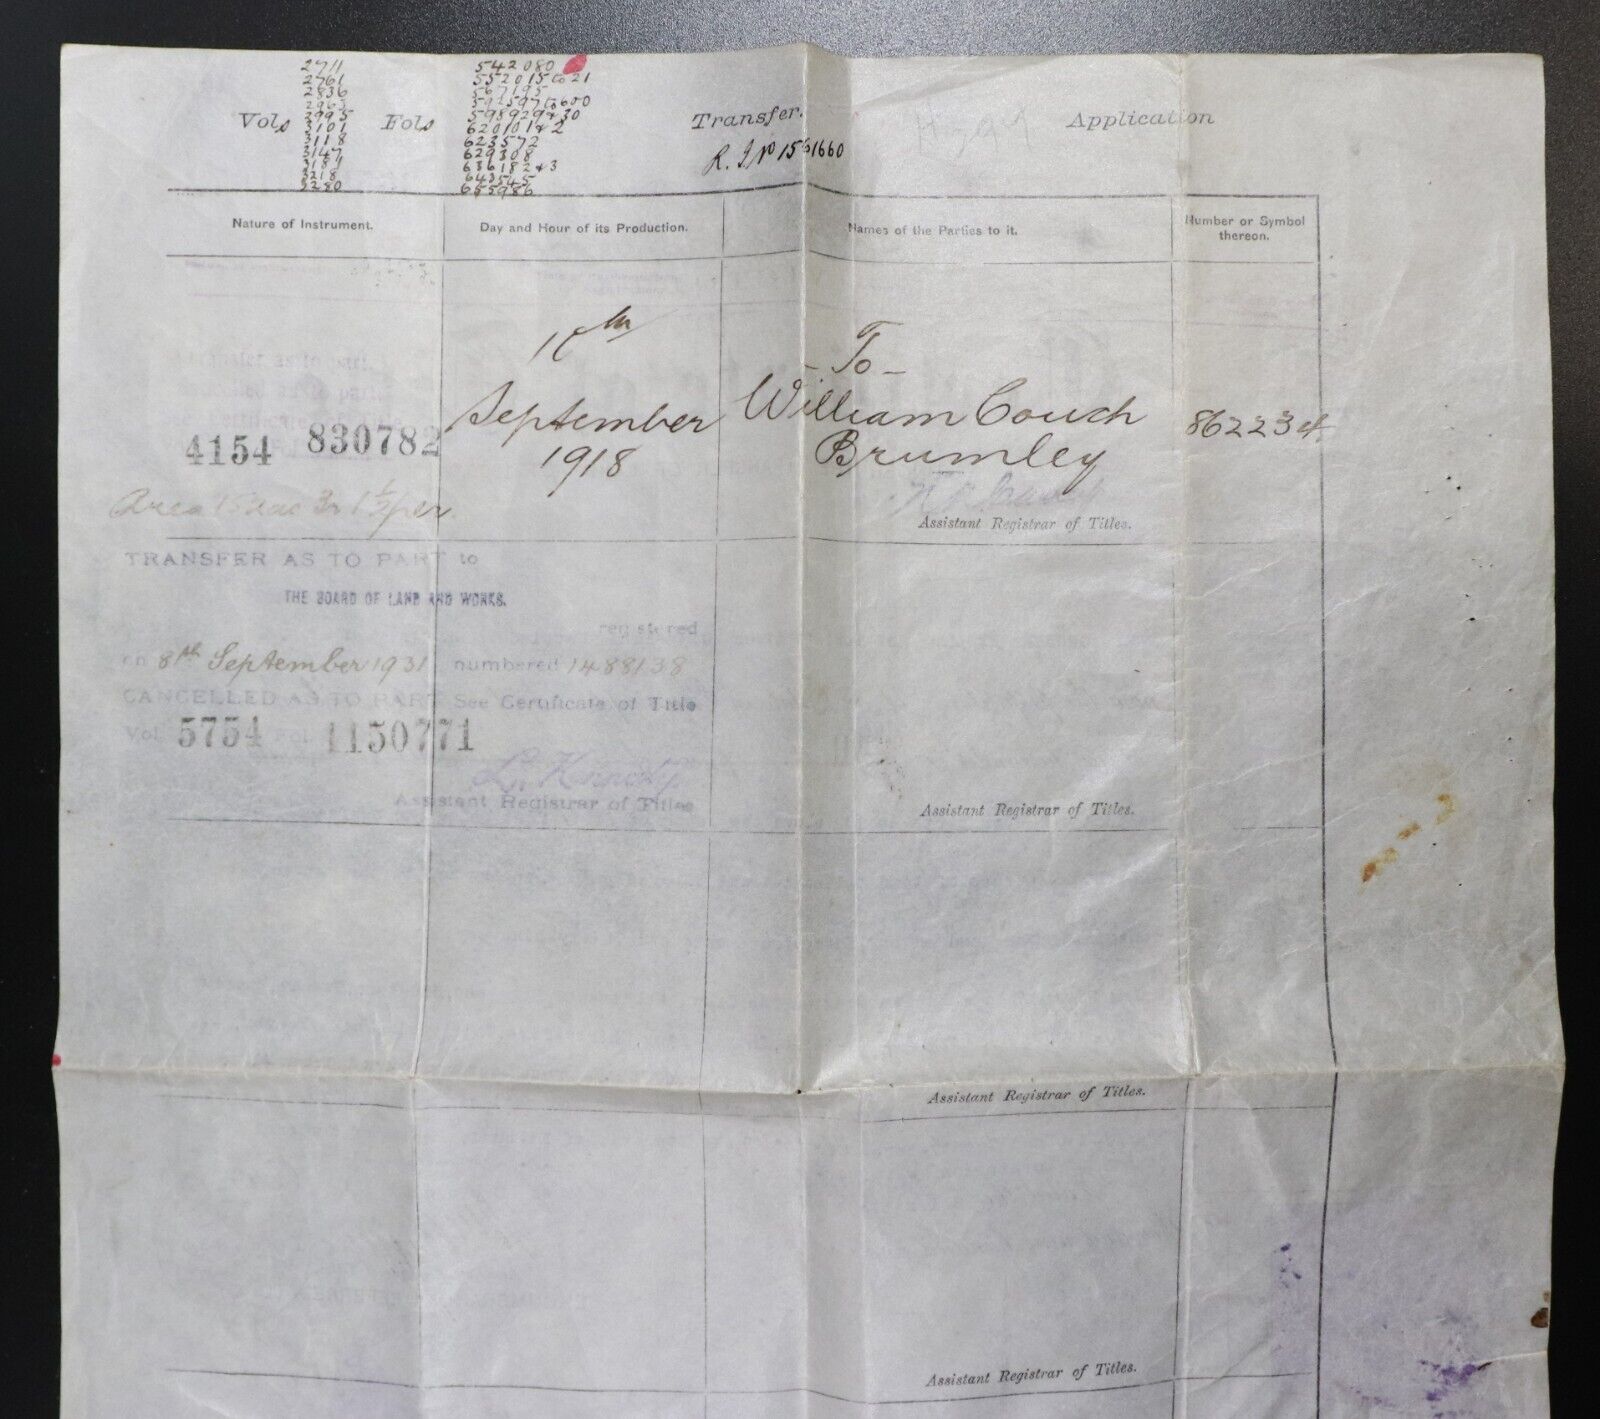 2711
2761
2836
2963
2995
3101
3118
3147
3181
3218
3280
Vols
Fols
542080
552015 to 21
567195
592597 to 600
598929 & 30
620101 & 2
623572
629308
636182 & 3
643545
655986
Transfer.
1660
Application
Nature of Instrument.
Day and Hour of its Production.
Names of the Parties to it.
Number or Symbol
thereon.
September
1918
- To -
William Couch
Brumley
862234
4154 830782
Area
Assistant Registrar of Titles.
TRANSFER AS TO PART to
THE BOARD OF LAND AND WORKS.
registered
on 8th September 1931 numbered 1488138
CANCELLED AS TO PART See Certificate of Title
Vol. 5754 Fol. 1150771
Assistant Registrar of Titles
Assistant Registrar of Titles.
Assistant Registrar of Titles.
Assistant Registrar of Titles.